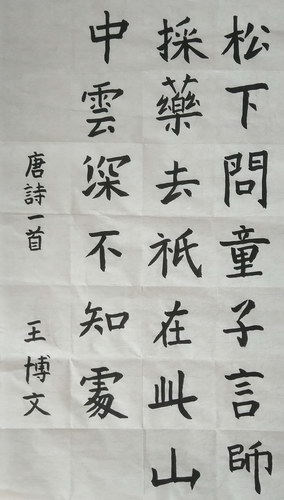 松下問童子言師
採藥去祇在此山
中雲深不知處
唐詩一首 王博文